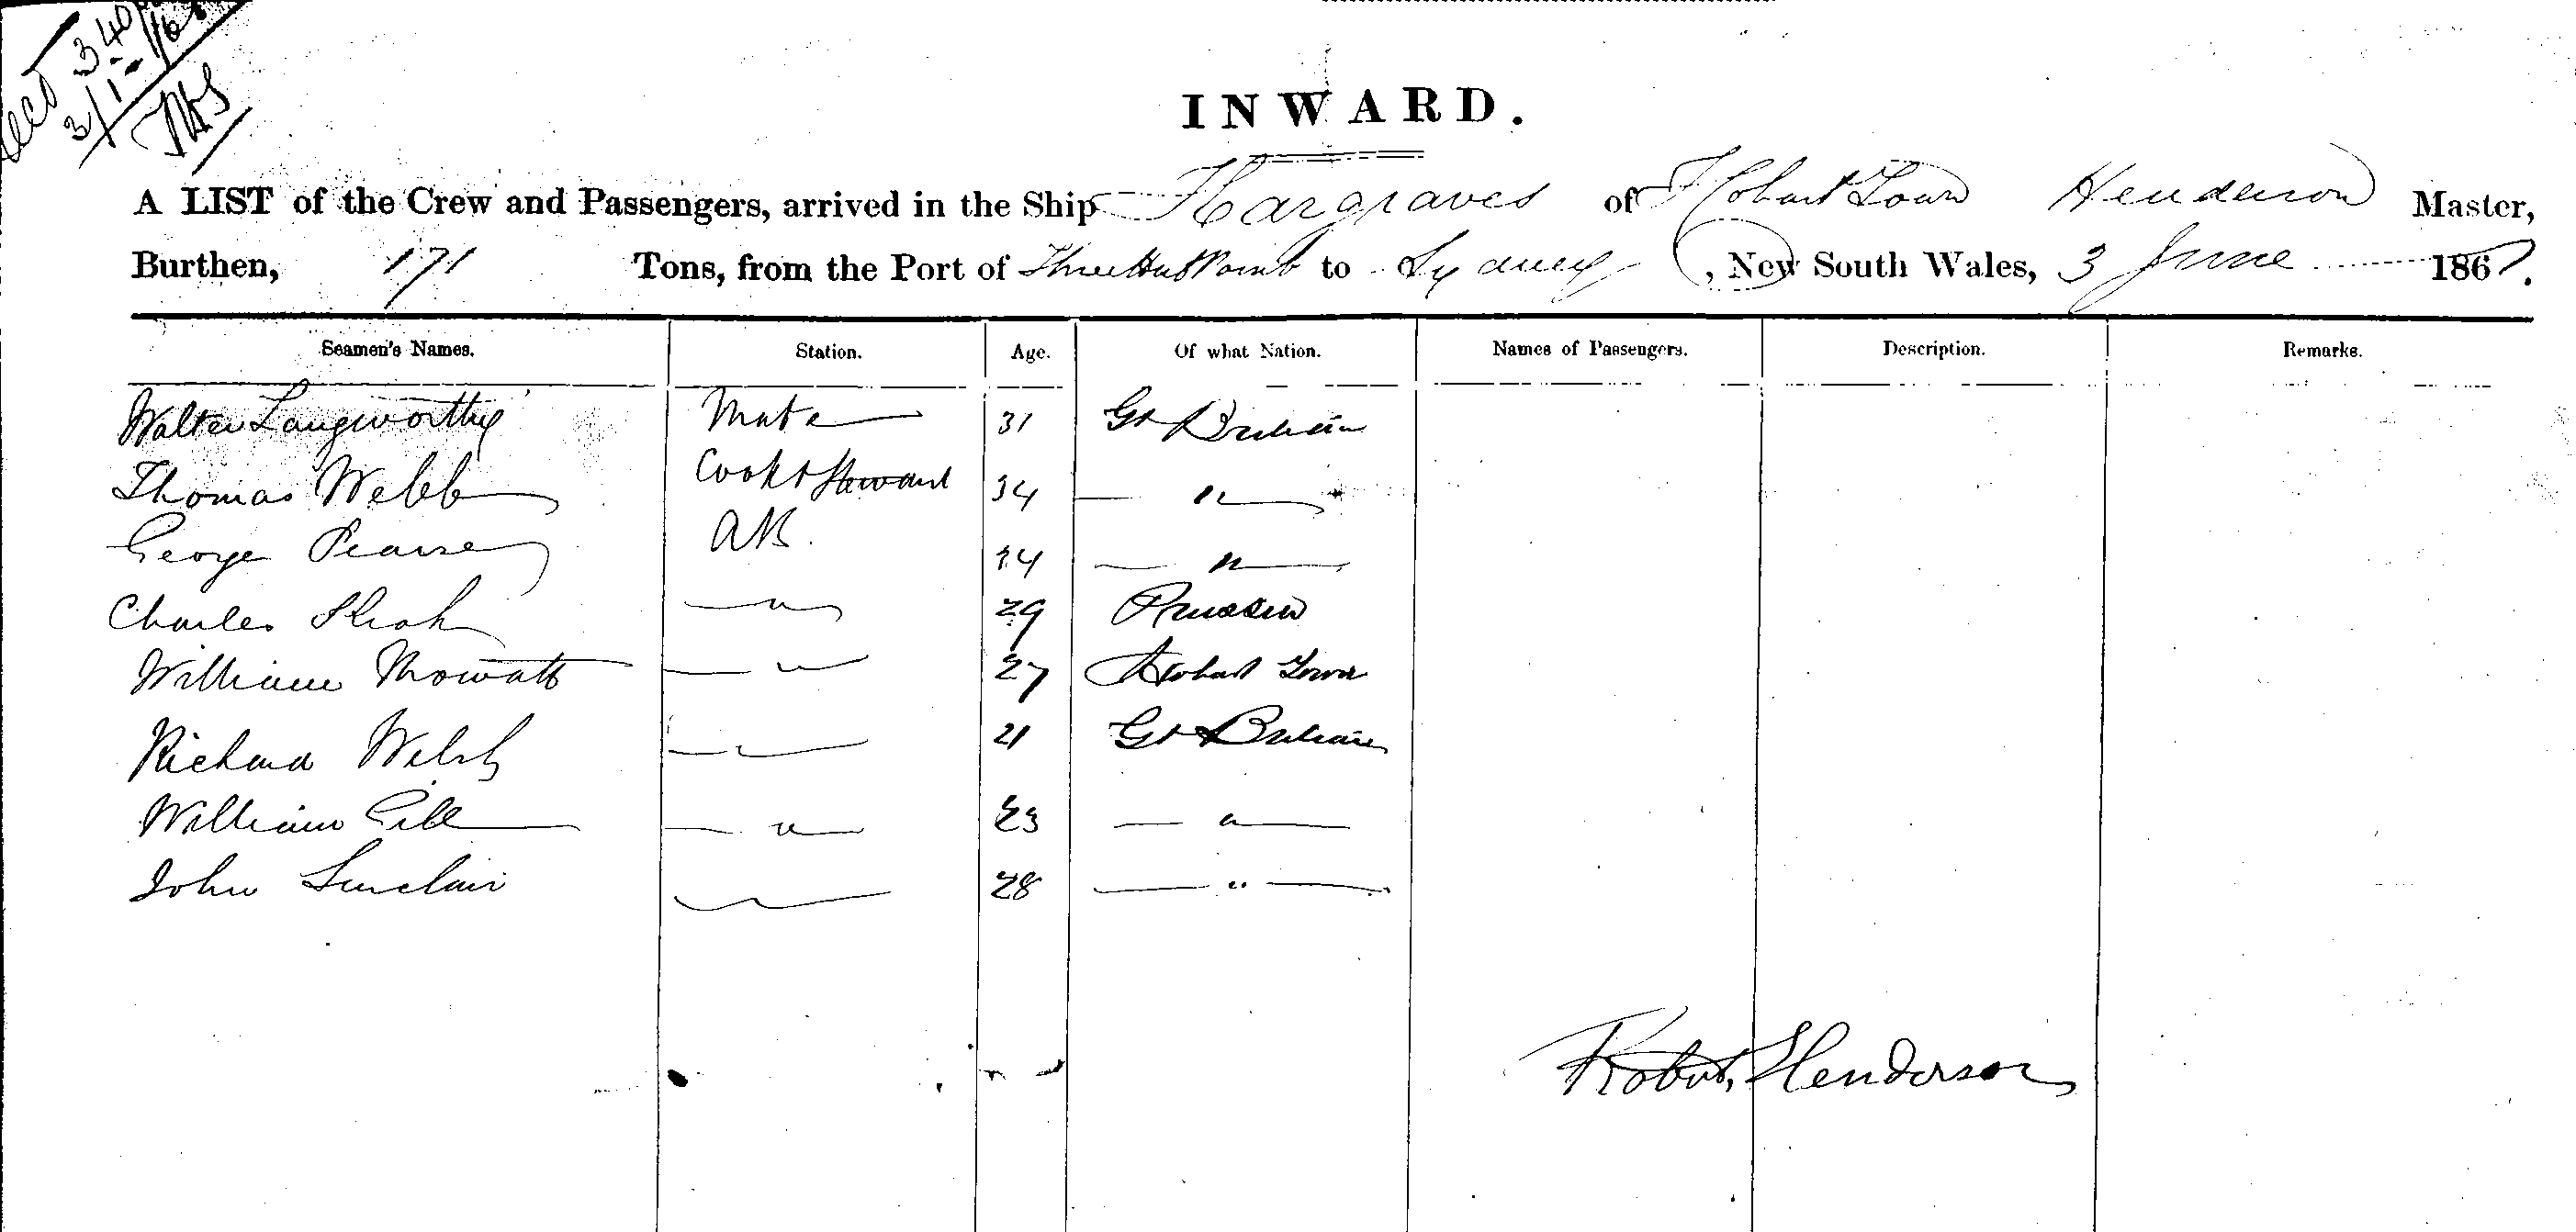 Recd 3 40
3/1
INWARD.
A LIST of the Crew and Passengers, arrived in the Ship Hargraves of Hobart Town Henderson Master,
Burthen, 171 Tons, from the Port of Three Hut Point to Sydney, New South Wales, 3 June 1867.
Seamen's Names. Station. Age. Of what Nation. Names of Passengers. Description. Remarks.
Walter Langworthy Mate 31 Gt Britain
Thomas Webb Cook & Steward 34 — " —
George Pearse AB. 34 — " —
Charles — " — 29 Prussia
William Mowatt — " — 27 Hobart Town
Richard Welsh — " — 21 Gt Britain
William Gill — " — 23 — " —
John Sinclair — " — 28 — " —
Robert Henderson